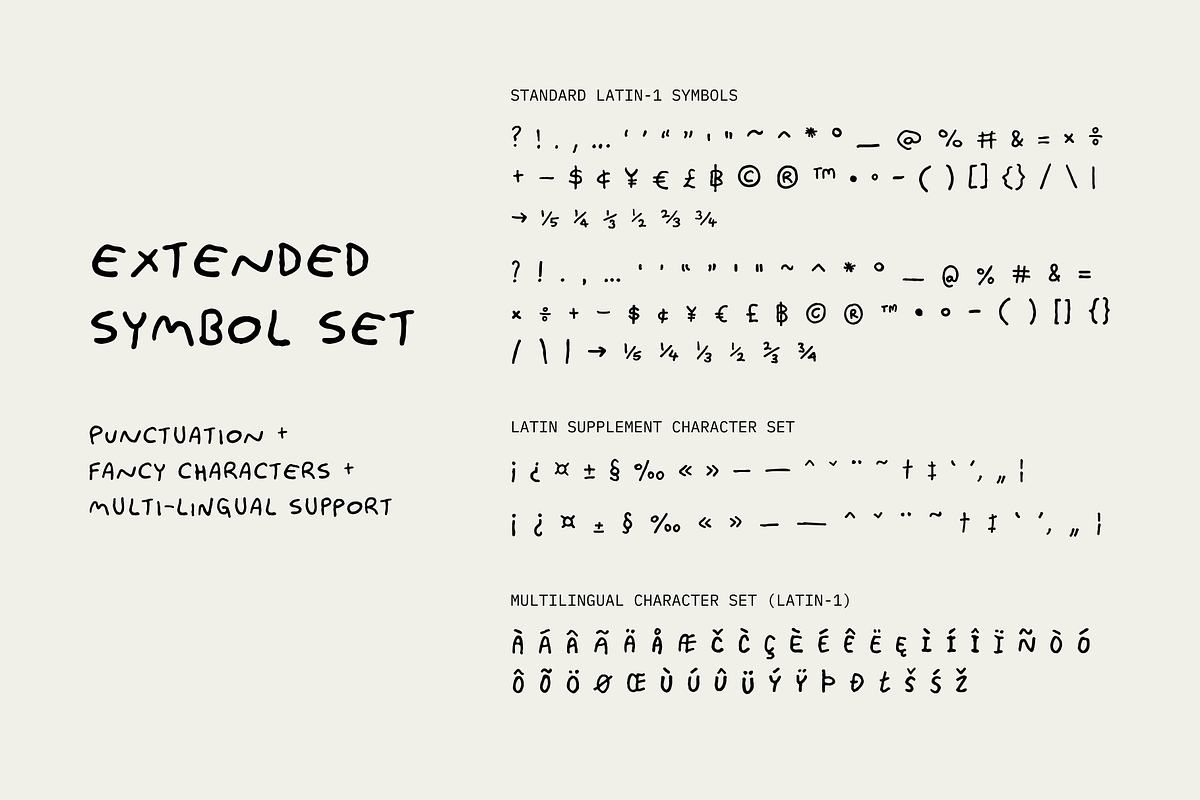 EXTENDED
SYMBOL SET
PUNCTUATION +
FANCY CHARACTERS +
MULTI-LINGUAL SUPPORT
STANDARD LATIN-1 SYMBOLS
? ! . , … ‘ ’ “ ” ' " ~ ^ * ° _ @ % # & = × ÷
+ − $ ¢ ¥ € £ ₿ © ® ™ • ° - ( ) [] {} / \ |
→ ⅕ ¼ ⅓ ½ ⅔ ¾
? ! . , … ‘ ’ “ ” ' " ~ ^ * ° _ @ % # & =
× ÷ + − $ ¢ ¥ € £ ₿ © ® ™ • ° - ( ) [] {}
/ \ | → ⅕ ¼ ⅓ ½ ⅔ ¾
LATIN SUPPLEMENT CHARACTER SET
¡ ¿ ¤ ± § ‰ « » – — ˆ ˇ ¨ ˜ † ‡ ` ´ ‚ „ ¦
¡ ¿ ¤ ± § ‰ « » – — ˆ ˇ ¨ ˜ † ‡ ` ´ ‚ „ ¦
MULTILINGUAL CHARACTER SET (LATIN-1)
À Á Â Ã Ä Å Æ Č C̀ Ç È É Ê Ë Ę Ì Í Î Ï Ñ Ò Ó
Ô Õ Ö Ø Œ Ù Ú Û Ü Ý Ÿ Þ Ð ŧ Š Ś Ž